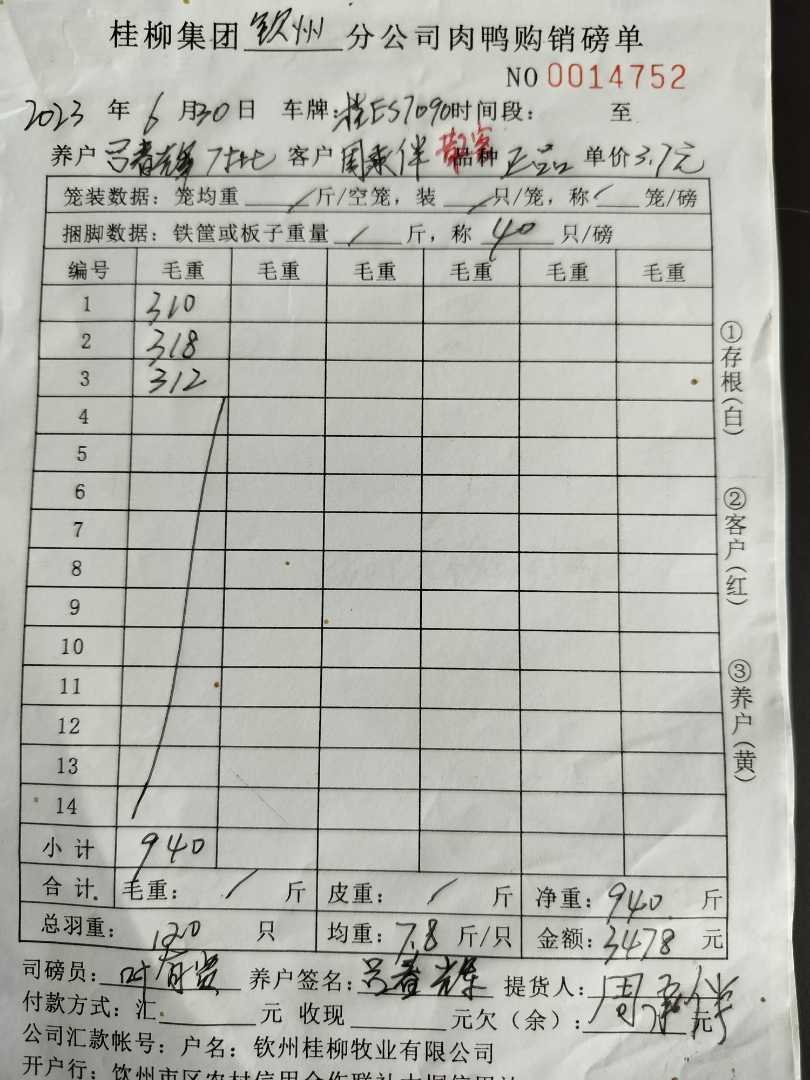 桂柳集团 钦州 分公司肉鸭购销磅单
NO 0014752
2023 年 6 月 30 日 车牌：桂ES7090 时间段： 至
养户 吕春辉 客户 周 伴 品种 正品 单价 3.7元
笼装数据：笼均重 / 斤/空笼，装 / 只/笼，称 / 笼/磅
捆脚数据：铁筐或板子重量 / 斤，称 40 只/磅
编号 毛重 毛重 毛重 毛重 毛重 毛重
1 310
2 318
3 312
4
5
6
7
8
9
10
11
12
13
14
小计 940
合计. 毛重： / 斤 皮重： / 斤 净重：940 斤
总羽重： 120 只 均重：7.8 斤/只 金额：3478 元
司磅员：叶 养户签名：吕春辉 提货人：周
付款方式：汇 元 收现 元欠（余）： 元
公司汇款帐号：户名：钦州桂柳牧业有限公司
开户行：钦州市区农村信用合作联社
①存根（白）
②客户（红）
③养户（黄）